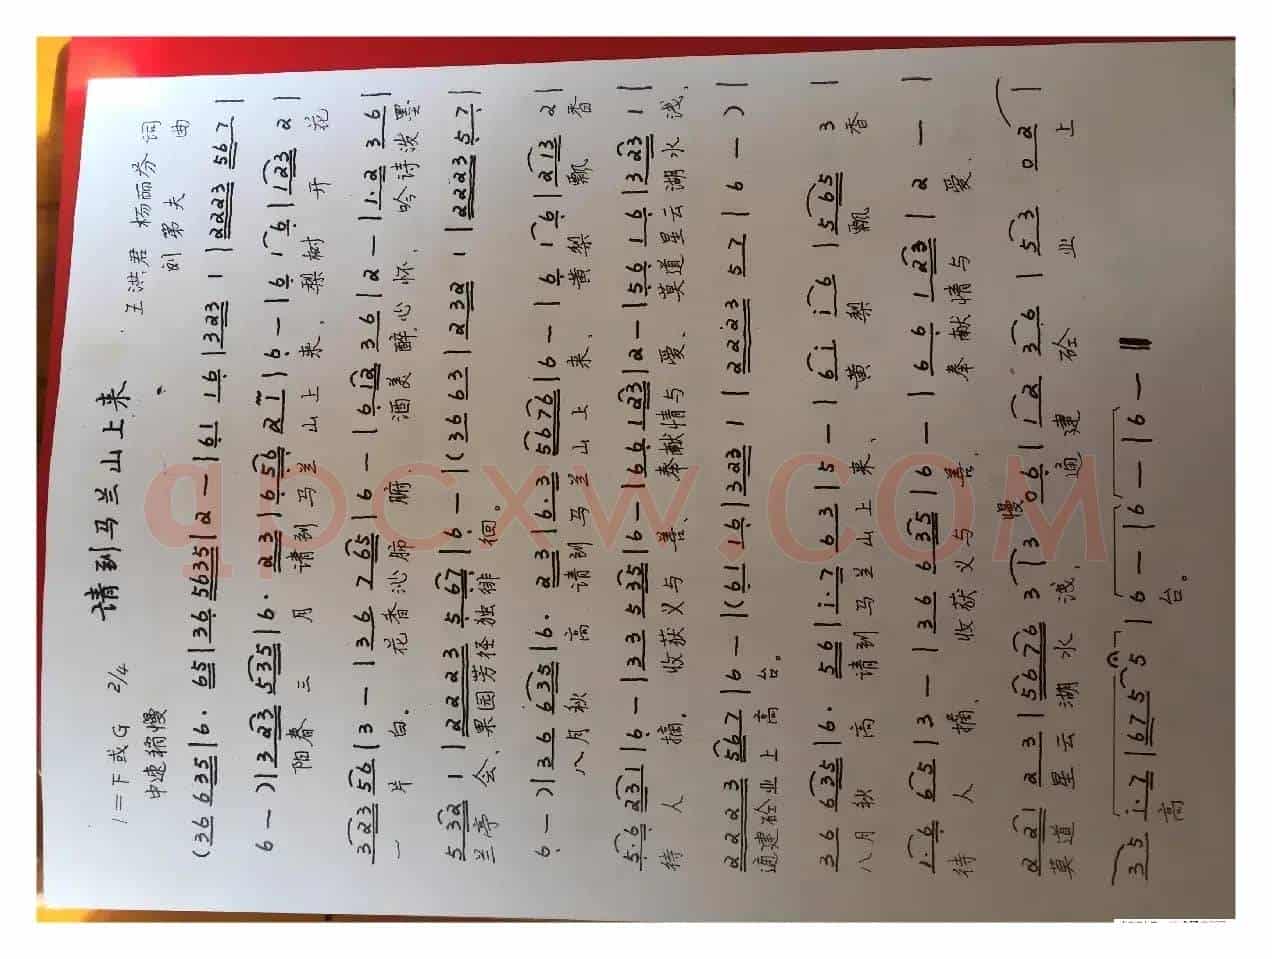 请到马兰山上来
1=下或G 2/4
王洪君 杨丽芬 词
中速稍慢
刘第夫 曲
(36 635|6· 65|36 5635|2 —|61 16|323 1|2223 567|
6 —)|323 535|6· 23|6 56 21|6 —|6 16|123 2|
阳春 三 月 请到 马兰 山上 来、 梨树 开 花
323 56|3 —|36 765|6 —|612 36|2 —|1·2 36|
一 片 白。 花香沁肺 腑、 酒美 醉心 怀、 吟诗泼墨
532 1|2223 567|6 —|(36 63|232 1|2223 57|
兰亭 会、果园芳径 独徘 徊。
6 —)|36 635|6· 23|6·3 5676|6 —|6 16|213 2|
八月 秋 高 请到 马兰 山上 来、 黄梨 飘 香
5·6 231|6 —|33 535|6 —|66 123|2 —|56 16|323 1|
待 人 摘。 收获义与 善、 奉献情与 爱、 莫道星云 湖水 浅、
2223 567|6 —|(61 16|323 1|2223 57|6 —)|
通建砼业上 高 台。
36 635|6· 56|i·7 63|5 —|6i i6|565 3|
八月 秋 高 请到 马兰 山上 来、 黄 梨 飘 香
1·6 65|3 —|36 635|6 —|66 123|2 —|
待 人 摘、 收获 义与 善、 奉献情与 爱、
慢
221 23|5676 3|3 06|12 36|53 02|
莫道 星云 湖水 浅、 通 建 砼 业 上
35 i·7|675 5|6 —|6 —|6 —‖
高 台。
qpcxw.COM